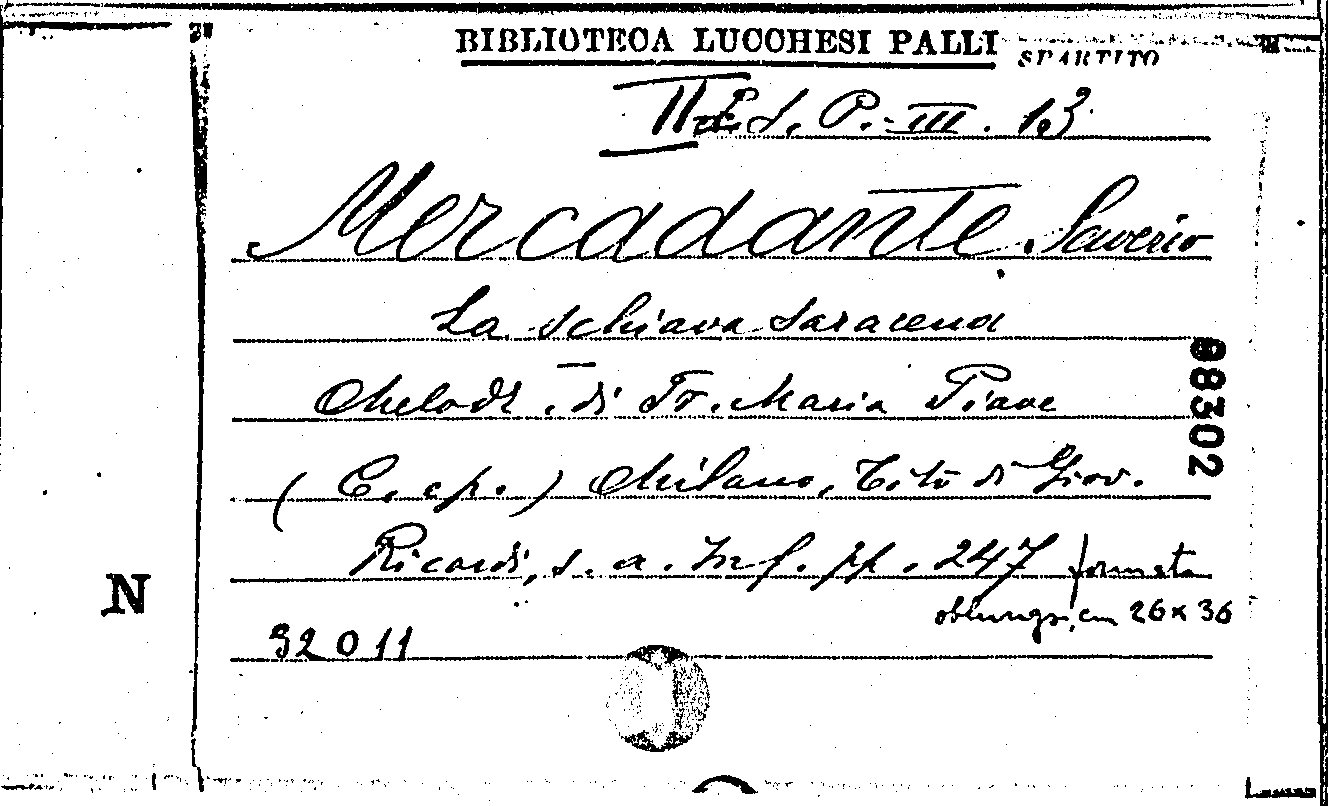 BIBLIOTECA LUCCHESI PALLI
SPARTITO
P. III. 13
Mercadante Saverio
La schiava saracena
Melodr. di Fr. Maria Piave
(C. e p.) Milano, Tito di Giov.
Ricordi, s. a. In f. pp. 247 formato
oblungo, cm 26 x 36
32011
88302
N